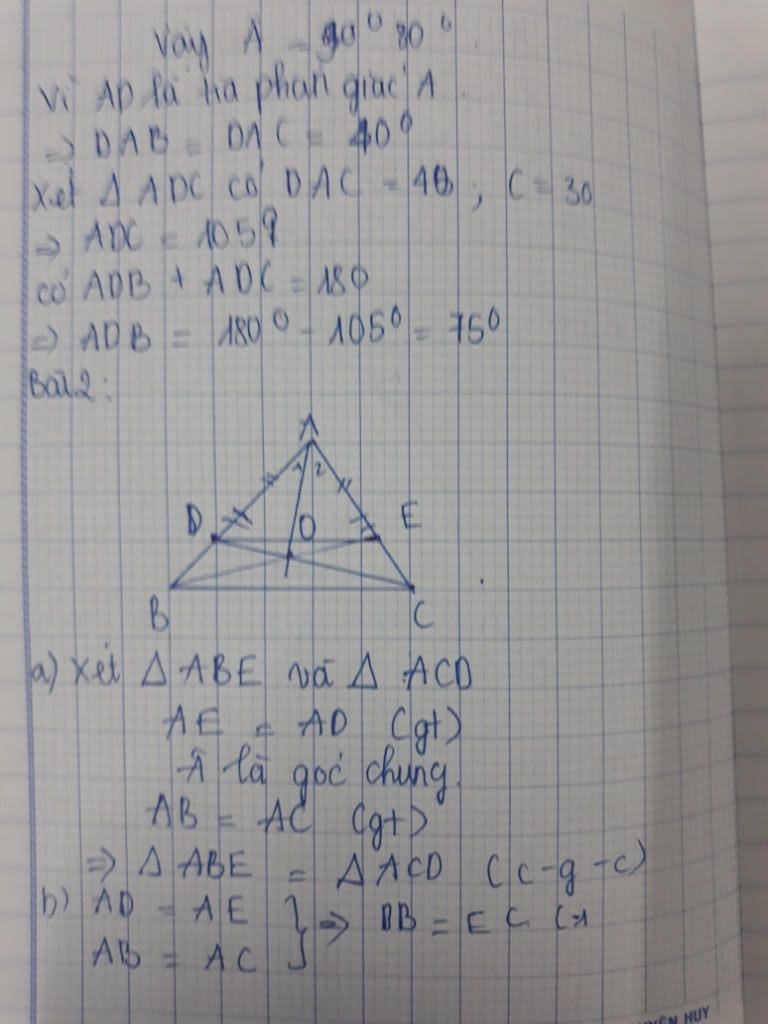 Vậy Â = 90° 80°
Vì AD là tia phân giác A
=> DAB = DAC = 40°
Xét Δ ADC có DAC = 40 ; C = 30
=> ADC = 105°
có ADB + ADC = 180
=> ADB = 180° - 105° = 75°
Bài 2:
A
1 2
D O E
B C
a) Xét Δ ABE và Δ ACD
AE = AD (gt)
Â là góc chung.
AB = AC (gt)
=> Δ ABE = Δ ACD (c-g-c)
b) AD = AE } => DB = EC (1
AB = AC
HUY